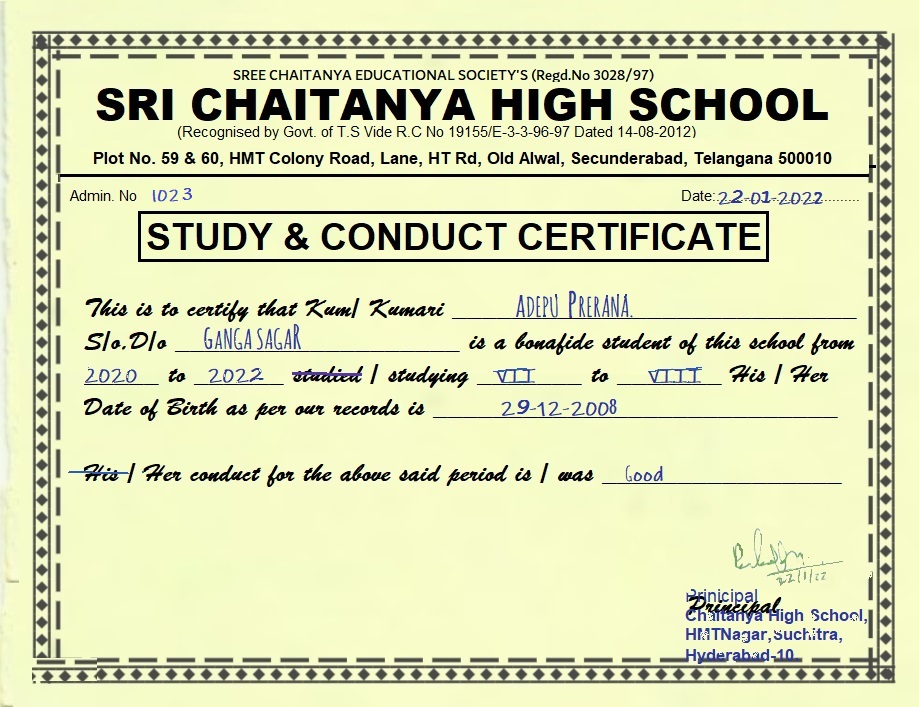 SREE CHAITANYA EDUCATIONAL SOCIETY'S (Regd.No 3028/97)
SRI CHAITANYA HIGH SCHOOL
(Recognised by Govt. of T.S Vide R.C No 19155/E-3-3-96-97 Dated 14-08-2012)
Plot No. 59 & 60, HMT Colony Road, Lane, HT Rd, Old Alwal, Secunderabad, Telangana 500010
Admin. No 1023 Date: 22-01-2022
STUDY & CONDUCT CERTIFICATE
This is to certify that Kum/ Kumari ADEPU PRERANA.
S/o.D/o GANGA SAGAR is a bonafide student of this school from
2020 to 2022 studied / studying VII to VIII His / Her
Date of Birth as per our records is 29-12-2008
His / Her conduct for the above said period is / was Good
22/1/22
Prinicipal
Principal
Chaitanya High School,
HMTNagar,Suchitra,
Hyderabad-10.